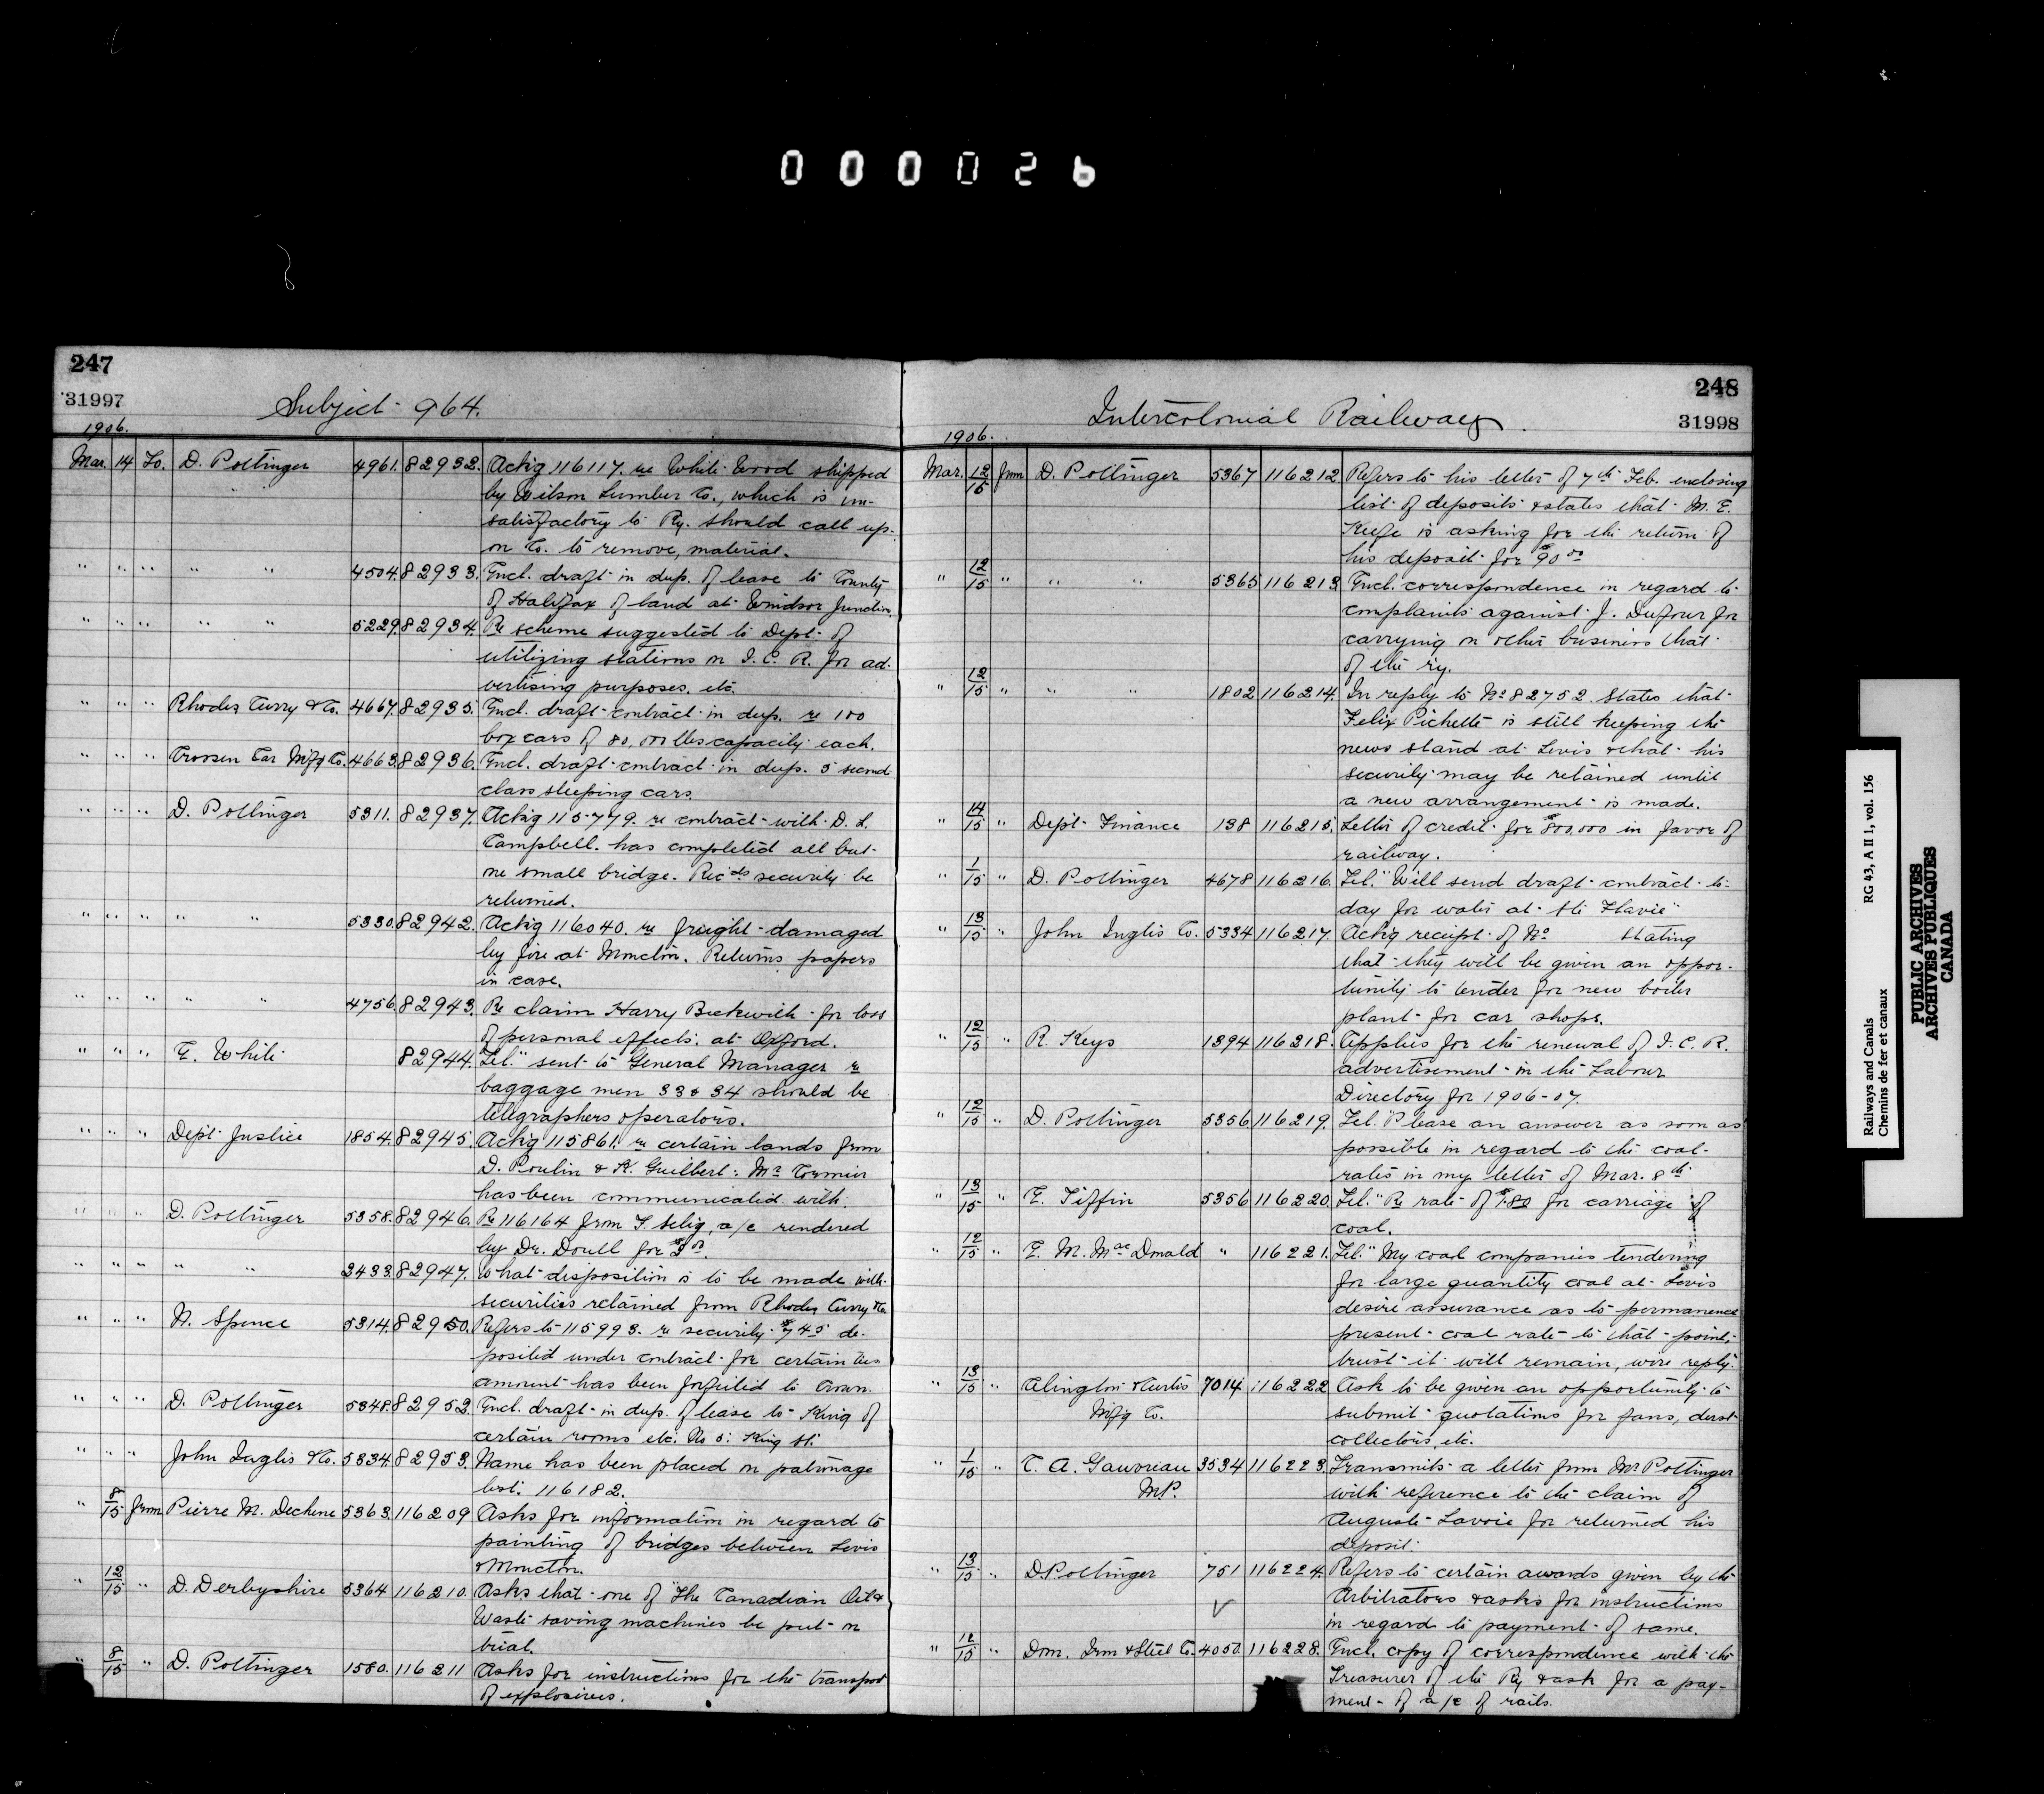 000026
247
31997
Subject 964.
1906.
Mar. 14 To. D. Pottinger 4961. 82932. Actkg 116117. re White Wood shipped
by Wilson Lumber Co., which is un-
satisfactory to Ry. should call up-
on Co. to remove, material.
" " " " " 4504. 82933. Encl. draft in dup. of lease to County
of Halifax of land at Windsor Junction.
" " " " " 5229. 82934. Re scheme suggested to Dept. of
utilizing stations on I. C. R. for ad-
vertising purposes. etc.
" " " Rhodes Curry & Co. 4667. 82935. Encl. draft contract in dup. re 100
box cars of 80,000 lbs capacity each.
" " " Crossen Car Mfg Co. 4663. 82936. Encl. draft contract in dup. 5 second
class sleeping cars.
" " " D. Pottinger 5311. 82937. Actkg 115779. re contract with D. L.
Campbell. has completed all but
one small bridge. Recds security be
returned.
" " " " " 5330. 82942. Actkg 116040. re freight damaged
by fire at Moncton. Returns papers
in case.
" " " " " 4756. 82943. Re claim Harry Beckwith for loss
of personal effects. at Oxford.
" " " E. White 82944. Tel." sent to General Manager re
baggage men 33 & 34 should be
telegraphers operators.
" " " Dept. Justice 1854. 82945. Actkg 115861. re certain lands from
D. Poulin & K. Guilbert: Mr Cormier
has been communicated with.
" " " D. Pottinger 5358. 82946. Re 116164 from T. Selig, a/c rendered
by Dr. Doull for
" " " " " 2433. 82947. What disposition is to be made with
securities retained from Rhodes Curry & Co.
" " " N. Spence 5314. 82950. Refers to 115993. re security $745 de-
posited under contract for certain ties
amount has been forfeited to Crown.
" " " D. Pottinger 5348. 82952. Encl. draft in dup. of lease to King of
certain rooms etc. No 5: King St.
" " " John Inglis & Co. 5334. 82953. Name has been placed on patronage
list. 116182.
" 8/15 from Pierre M. Dechene 5363. 116209 Asks for information in regard to
painting of bridges between Levis
& Moncton.
" 12/15 " D. Derbyshire 5364 116210. Asks that one of "The Canadian Oil &
Waste saving machines be put on
trial.
" 8/15 " D. Pottinger 1580. 116211 Asks for instructions for the transport
of explosives.
248
31998
Intercolonial Railway
1906.
Mar. 12/15 from D. Pottinger 5367 116212 Refers to his letter of 7th Feb. enclosing
list of deposits & states that M. E.
Keefe is asking for the return of
his deposit for $90.00
" 12/15 " " " 5365 116213. Encl. correspondence in regard to
complaints against J. Dufour for
carrying on other business that
of the ry.
" 12/15 " " " 1802 116214. In reply to No 82752. States that
Felix Pichette is still keeping the
news stand at Levis & that his
security may be retained until
a new arrangement is made.
" 14/15 " Dept Finance 138 116215. Letter of credit for $800.000 in favor of
railway.
" 1/15 " D. Pottinger 4678 116216. Tel. "Will send draft contract to-
day for water at Ste Flavie"
" 13/15 " John Inglis Co. 5334 116217. Actkg receipt of No stating
that they will be given an oppor-
tunity to tender for new boiler
plant for car shops.
" 12/15 " R. Keys 1394 116218. Applies for the renewal of I. C. R.
advertisement in the Labour
Directory for 1906-07.
" 12/15 " D. Pottinger 5356 116219. Tel. "Please an answer as soon as
possible in regard to the coal
rates in my letter of Mar. 8th.
" 13/15 " E. Tiffin 5356 116220. Tel. "Re rate of $1.80 for carriage of
coal.
" 12/15 " E. M. MacDonald " 116221. Tel." My coal companies tendering
for large quantity coal at Levis
desire assurance as to permanence
present coal rate to that point,
trust it will remain, wire reply.
" 13/15 " Alington & Curtis 7014 116222 Ask to be given an opportunity to
Mfg Co. submit quotations for fans, dust
collectors, etc.
" 1/15 " C. A. Gauvreau 3534 116223. Transmits a letter from Mr Pottinger
M.P. with reference to the claim of
Auguste Lavoie for returned his
deposit.
" 13/15 " D. Pottinger 751 116224. Refers to certain awards given by the
Arbitrators & asks for instructions
in regard to payment of same.
" 12/15 " Dom. Iron & Steel Co. 4050. 116228. Encl. copy of correspondence with the
Treasurer of the Ry & ask for a pay-
ment of a/c of rails.
Railways and Canals RG 43, A II 1, vol. 156
Chemins de fer et canaux
PUBLIC ARCHIVES
ARCHIVES PUBLIQUES
CANADA